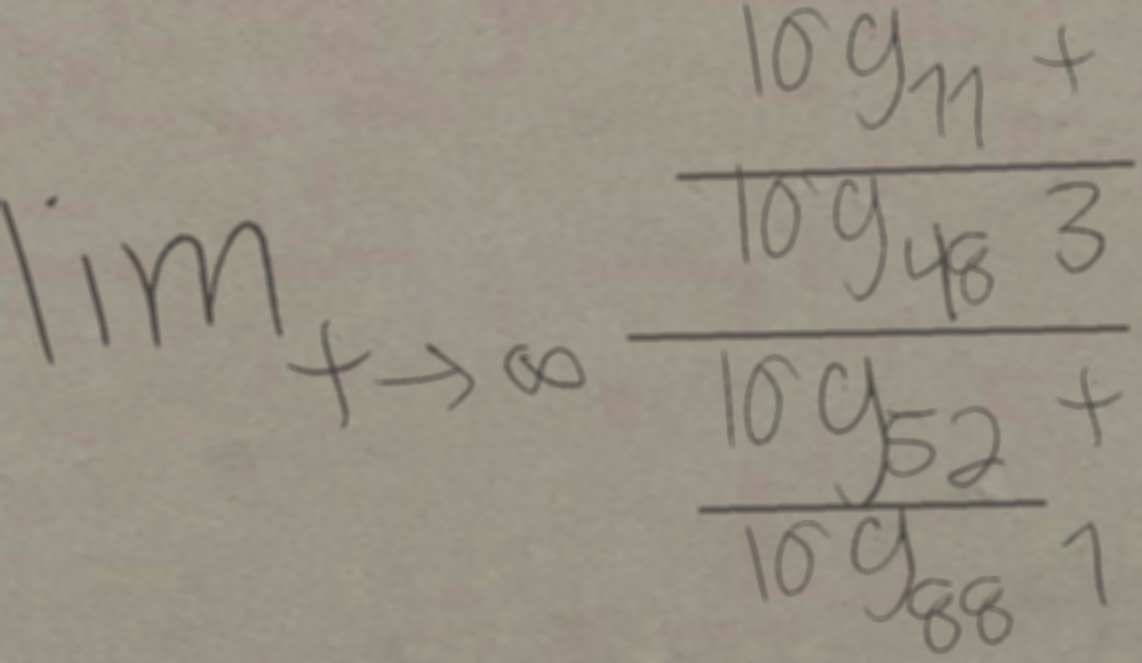 \lim_{t \to \infty} \frac{\frac{\log_{11} t}{\log_{48} 3}}{\frac{\log_{52} t}{\log_{88} 1}}